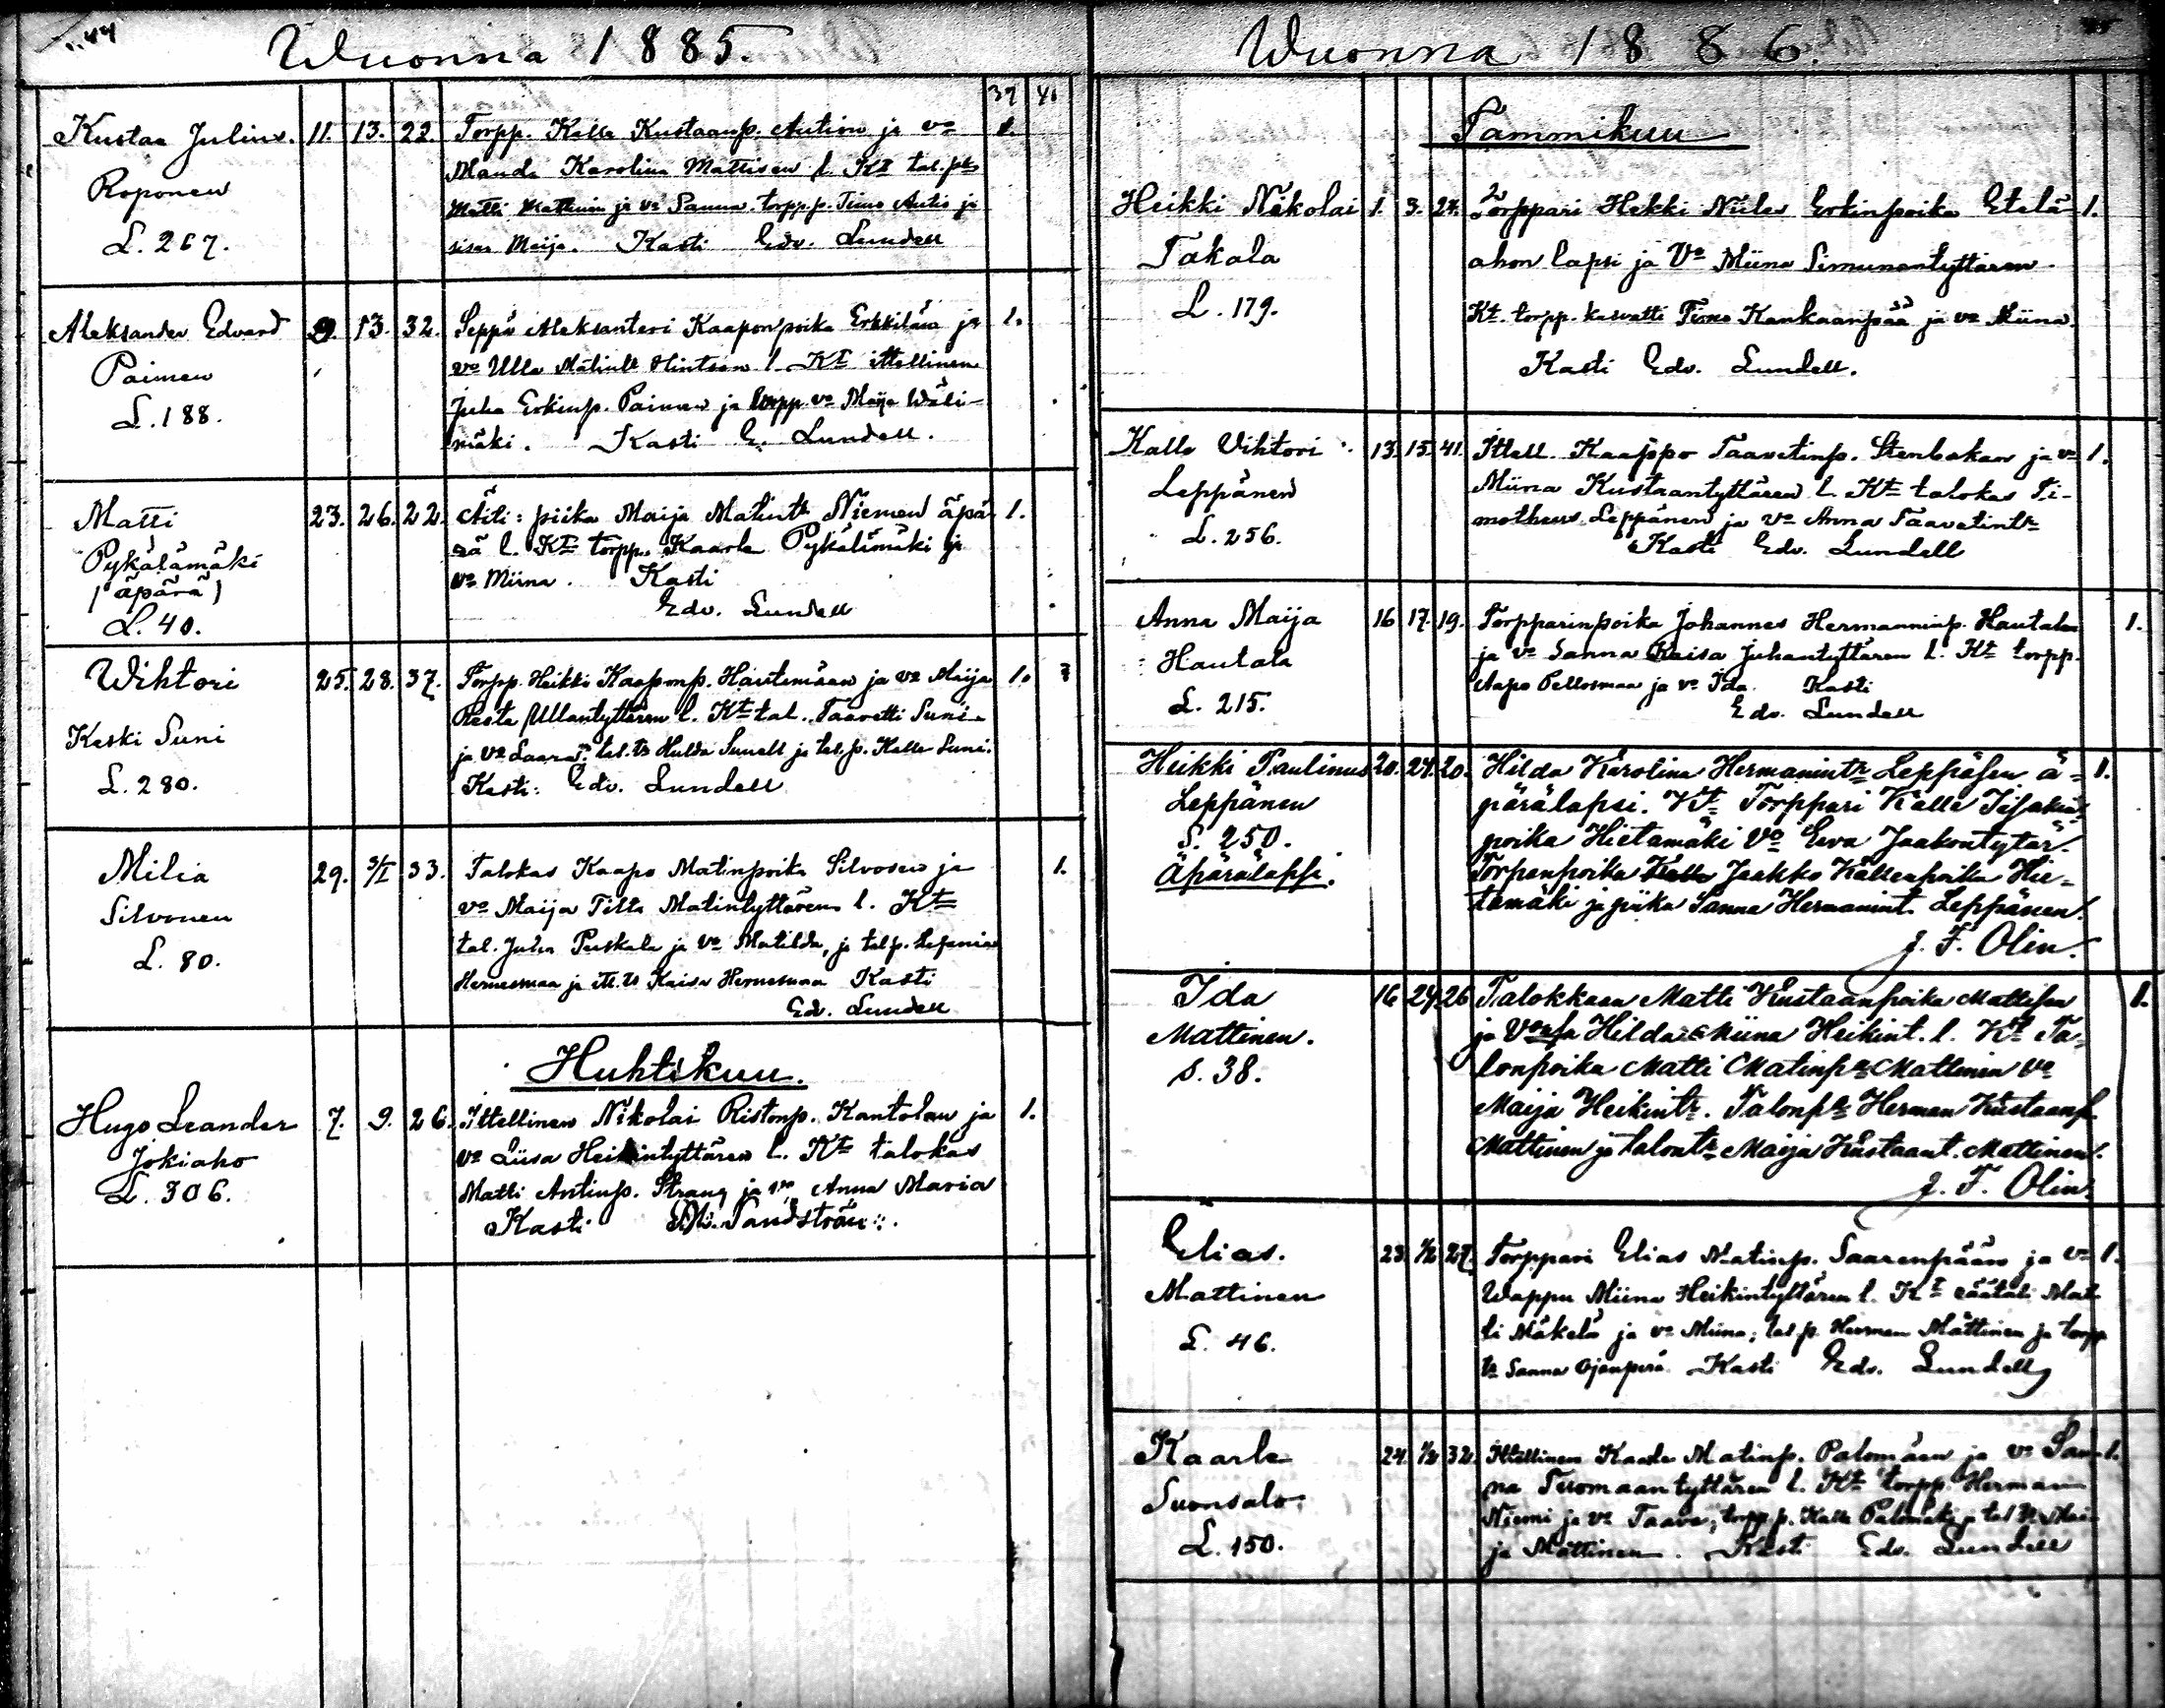 44
Wuonna 1885.
37 41
Kustaa Julius. 11. 13. 22. Torpp. Kalle Kustaanp. Aution ja vo 1.
Roponen
L. 267.
Manda Karolina Mattisen l. Kt tal.p
Matti Mattinen ja vo Sanna. torpp.p. Timo Autio ja
sisar Maija. Kasti Edv. Lundell
Aleksander Edvard 9. 13. 32. Seppä Aleksanteri Kaaponpoika Erkkilän ja 1.
Paimen
L. 188.
vo Ulla Matint Hintsan l. Kt ittellinen
Juha Erkinp. Paimen ja torpp. vo Maija Wäli-
mäki. Kasti E. Lundell.
Matti 23. 26. 22. Äiti: piika Maija Matintr Niemen äpä- 1.
Pykälämäki
(äpärä)
L. 40.
rä l. Kt torpp. Kaarle Pykälämäki ja
vo Miina. Kasti
Edv. Lundell
Wihtori 25. 28. 37. Torpp. Heikki Kaaponp. Hautemäen ja vo Maija 1.
Keski Suni
L. 280.
Resta Ullantyttären l. Kt tal. Taavetti Suni
ja vo Saara; tal. tr Hulda Sunell ja tal.p. Kalle Suni.
Kasti: Edv. Lundell
Milia 29. 3/I 33. Talokas Kaapo Matinpoika Silvosen ja 1.
Silvonen
L. 80.
vo Maija Tilta Matintyttären l. Kt
tal. Juha Puskala ja vo Matilda, ja talp. Sefanias
Hernesmaa ja itl. tr Kaisa Hernesmaa Kasti
Edv. Lundell
Huhtikuu.
Hugo Leander 7. 9. 26. Ittellinen Nikolai Ristonp. Kantolan ja 1.
Jokiaho
L. 306.
vo Liisa Heikintyttären l. Kt talokas
Matti Antinp. Strang ja vo Anna Maria
Kasti Sandström.
Wuonna 1886.
Tammikuu
Heikki Nikolai 1. 3. 27. Torppari Heikki Niilo Erkinpoika Etelä- 1.
Takala
L. 179.
ahon lapsi ja Vo Miina Simunantyttären.
Kt. torpp. kasvatti Timo Kankaanpää ja vo Miina.
Kasti Edv. Lundell.
Kalle Vihtori 13. 15. 41. Ittell. Kaappo Taavetinp. Stenbakan ja vo 1.
Leppänen
L. 256.
Miina Kustaantyttären l. Kt talokas Ti-
motheus Leppänen ja vo Anna Taavetintr
Kasti Edv. Lundell
Anna Maija 16 17. 19. Torpparinpoika Johannes Hermanninp. Hautalan 1.
Hautala
L. 215.
ja vo Sanna Kaisa Juhantyttären l. Kt torpp.
Aapo Pellosmaa ja vo Ida. Kasti
Edv. Lundell
Heikki Paulinus 20. 24. 20. Hilda Karolina Hermanintr Leppäsen ä- 1.
Leppänen
S. 250.
Äpärälapsi.
pärälapsi. Kt Torppari Kalle Iisakin
poika Hietamäki Vo Eeva Jaakontytär.
Torpanpoika Jaakko Kallenpoika Hie-
tamäki ja piika Sanna Hermanint. Leppänen.
J. F. Olin.
Ida 16 24. 26 Talokkaan Matti Kustaanpoika Mattisen 1.
Mattinen.
S. 38.
ja Vonsa Hilda Miina Heikint. l. Kt Ta-
lonpoika Matti Matinp Mattinen Vo
Maija Heikintr. Talonp Herman Kustaanp.
Mattinen ja talontr Maija Kustaant. Mattinen.
J. F. Olin.
Elias. 23. 1/2 27. Torppari Elias Matinp. Saarenpään ja vo 1.
Mattinen
L. 46.
Wappu Miina Heikintyttären l. Kt räätäli Mat-
ti Mäkelä ja vo Miina; tal.p. Herman Mattinen ja torpp
tr Sanna Ojanperä. Kasti Edv. Lundell
Kaarle 24. 1/2 32. Ittellinen Kaarle Matinp. Palomäen ja vo San- 1.
Suonsalo
L. 150.
na Tuomaantyttären l. Kt torpp. Herman
Niemi ja vo Taava; torpp.p. Kalle Palomäki ja tal tr Mai-
ja Mattinen. Kasti Edv. Lundell